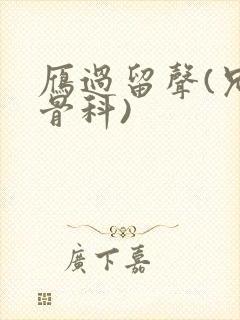 雁過留聲(兄
骨科)
廣下嘉